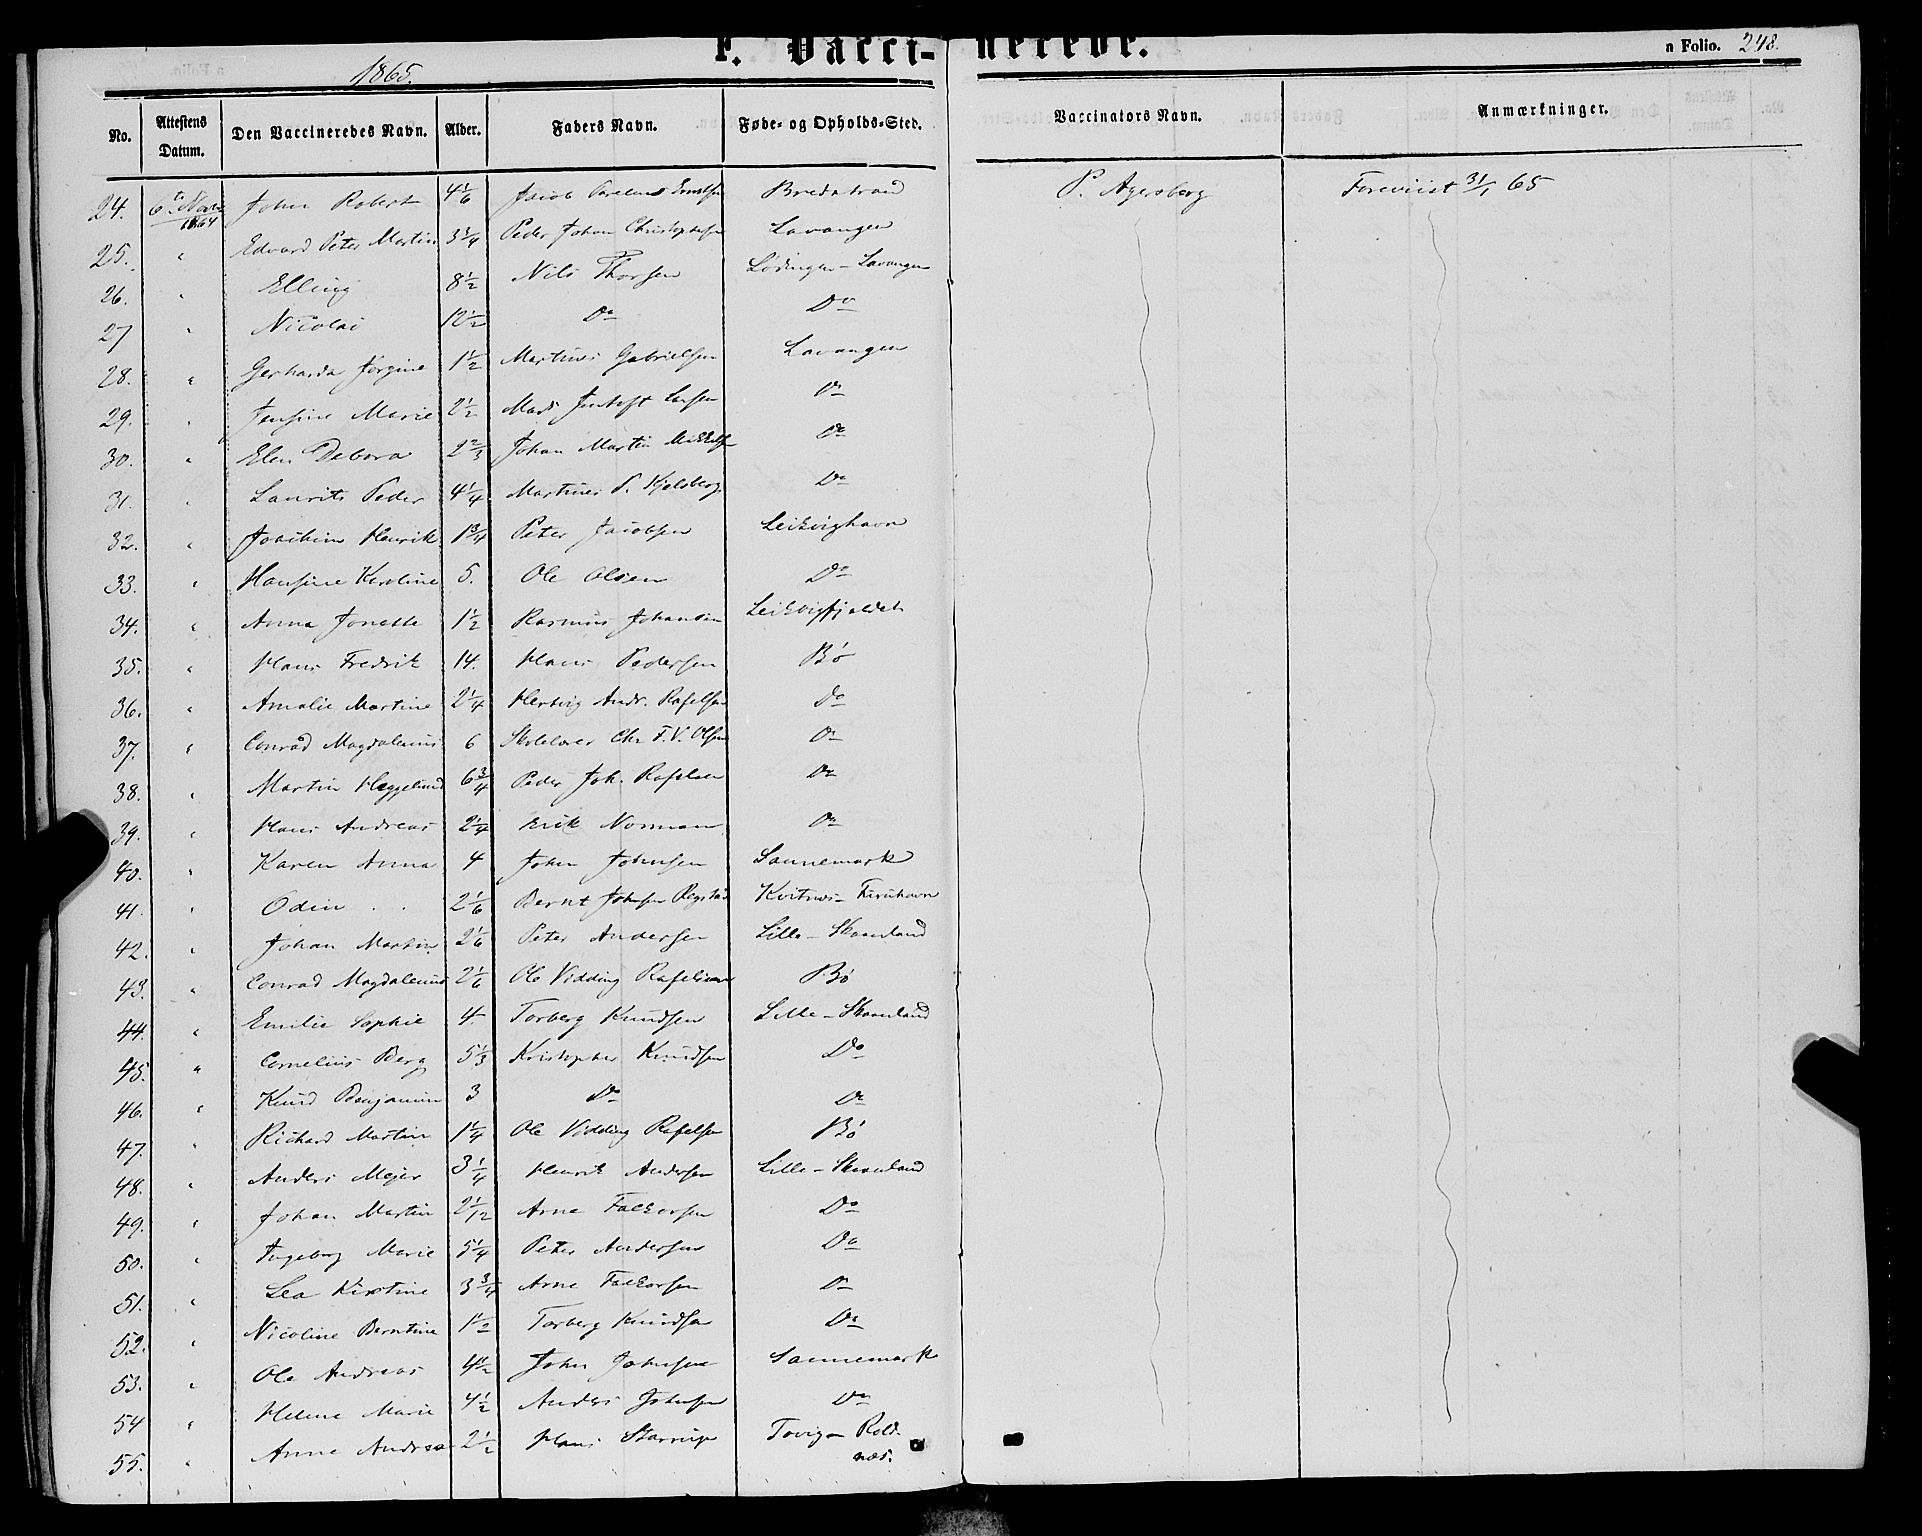 F. Vaccinerede.
n Folio. 248.
1865.
No. Attestens Datum. Den Vaccineredes Navn. Alder. Faders Navn. Føde- og Opholds-Sted. Vaccinators Navn. Anmærkninger.
24. 6te Novbr 1864 Johan Robert 4 1/6 Jacob Parelius Bredstrand P. Agersborg Foreviist 31/1 65
25. " Edvard Peter Martin 3 3/4 Peder Johan Christophersen Lavangen
26. " Elling 8 1/2 Nils Thorsen Lødingen - Lavangen
27 " Nicolai 12 1/2 Do Do
28. " Gerharda Jørgine 1 1/2 Martines Gabrielsen Lavangen
29. " Jensine Marie 2 1/2 Mads Jentoft Larsen Do
30. " Elen Debora 2 2/3 Johan Martin Mikkelsen Do
31. " Laurits Peder 4 1/4 Martines P. Kjelsberg Do
32. " Joachim Henrik 1 3/4 Peter Jacobsen Leikvighavn
33. " Hansine Karoline 5. Ole Olsen Do
34. " Anna Jonette 1 1/2 Rasmus Johansen Leikvigfjeldet
35. " Hans Fredrik 14. Hans Pedersen Bø
36. " Amalie Martine 2 1/4 Hertvig Andr. Rafelsen Do
37. " Conrad Magdalenus 6 Skolelærer Chr. F. V. Olsen Do
38. " Martin Heggelund 6 3/4 Peder Joh. Rafelsen Do
39. " Hans Andreas 2 1/4 Erik Norman Do
40. " Karen Anna 4 John Johnsen Sannemark
41. " Odin 2 1/6 Bernt Johnsen Kvitnes - Furuhavn
42. " Johan Martin 2 1/6 Peter Andersen Lille-Skaanland
43. " Conrad Magdalenus 2 1/6 Ole Vidding Rafelsen Bø
44. " Emilie Sophie 4. Torberg Knudsen Lille-Skaanland
45. " Cornelius Berg 5 1/3 Kristopher Knudsen Do
46. " Knud Benjamin 3 Do Do
47. " Richard Martin 1 1/4 Ole Vidding Rafelsen Bø
48. " Anders Mejer 3 1/4 Henrik Andersen Lille-Skaanland
49. " Johan Martin 2 1/12 Arne Falkorsen Do
50. " Ingeborg Marie 5 1/4 Peter Andersen Do
51. " Lea Kirstine 3 3/4 Arne Falkorsen Do
52. " Nicoline Berntine 1 1/2 Torberg Knudsen Do
53. " Ole Andreas 4 1/2 John Johnsen Sannemark
54 " Helene Marie 4 1/2 Anders Johnsen Do
55. " Anne Andrea 2 1/2 Hans Starrup Tovig - Rold-
næs.